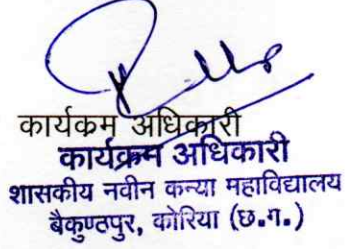 कार्यक्रम अधिकारी
कार्यक्रम अधिकारी
शासकीय नवीन कन्या महाविद्यालय
बैकुण्ठपुर, कोरिया (छ.ग.)